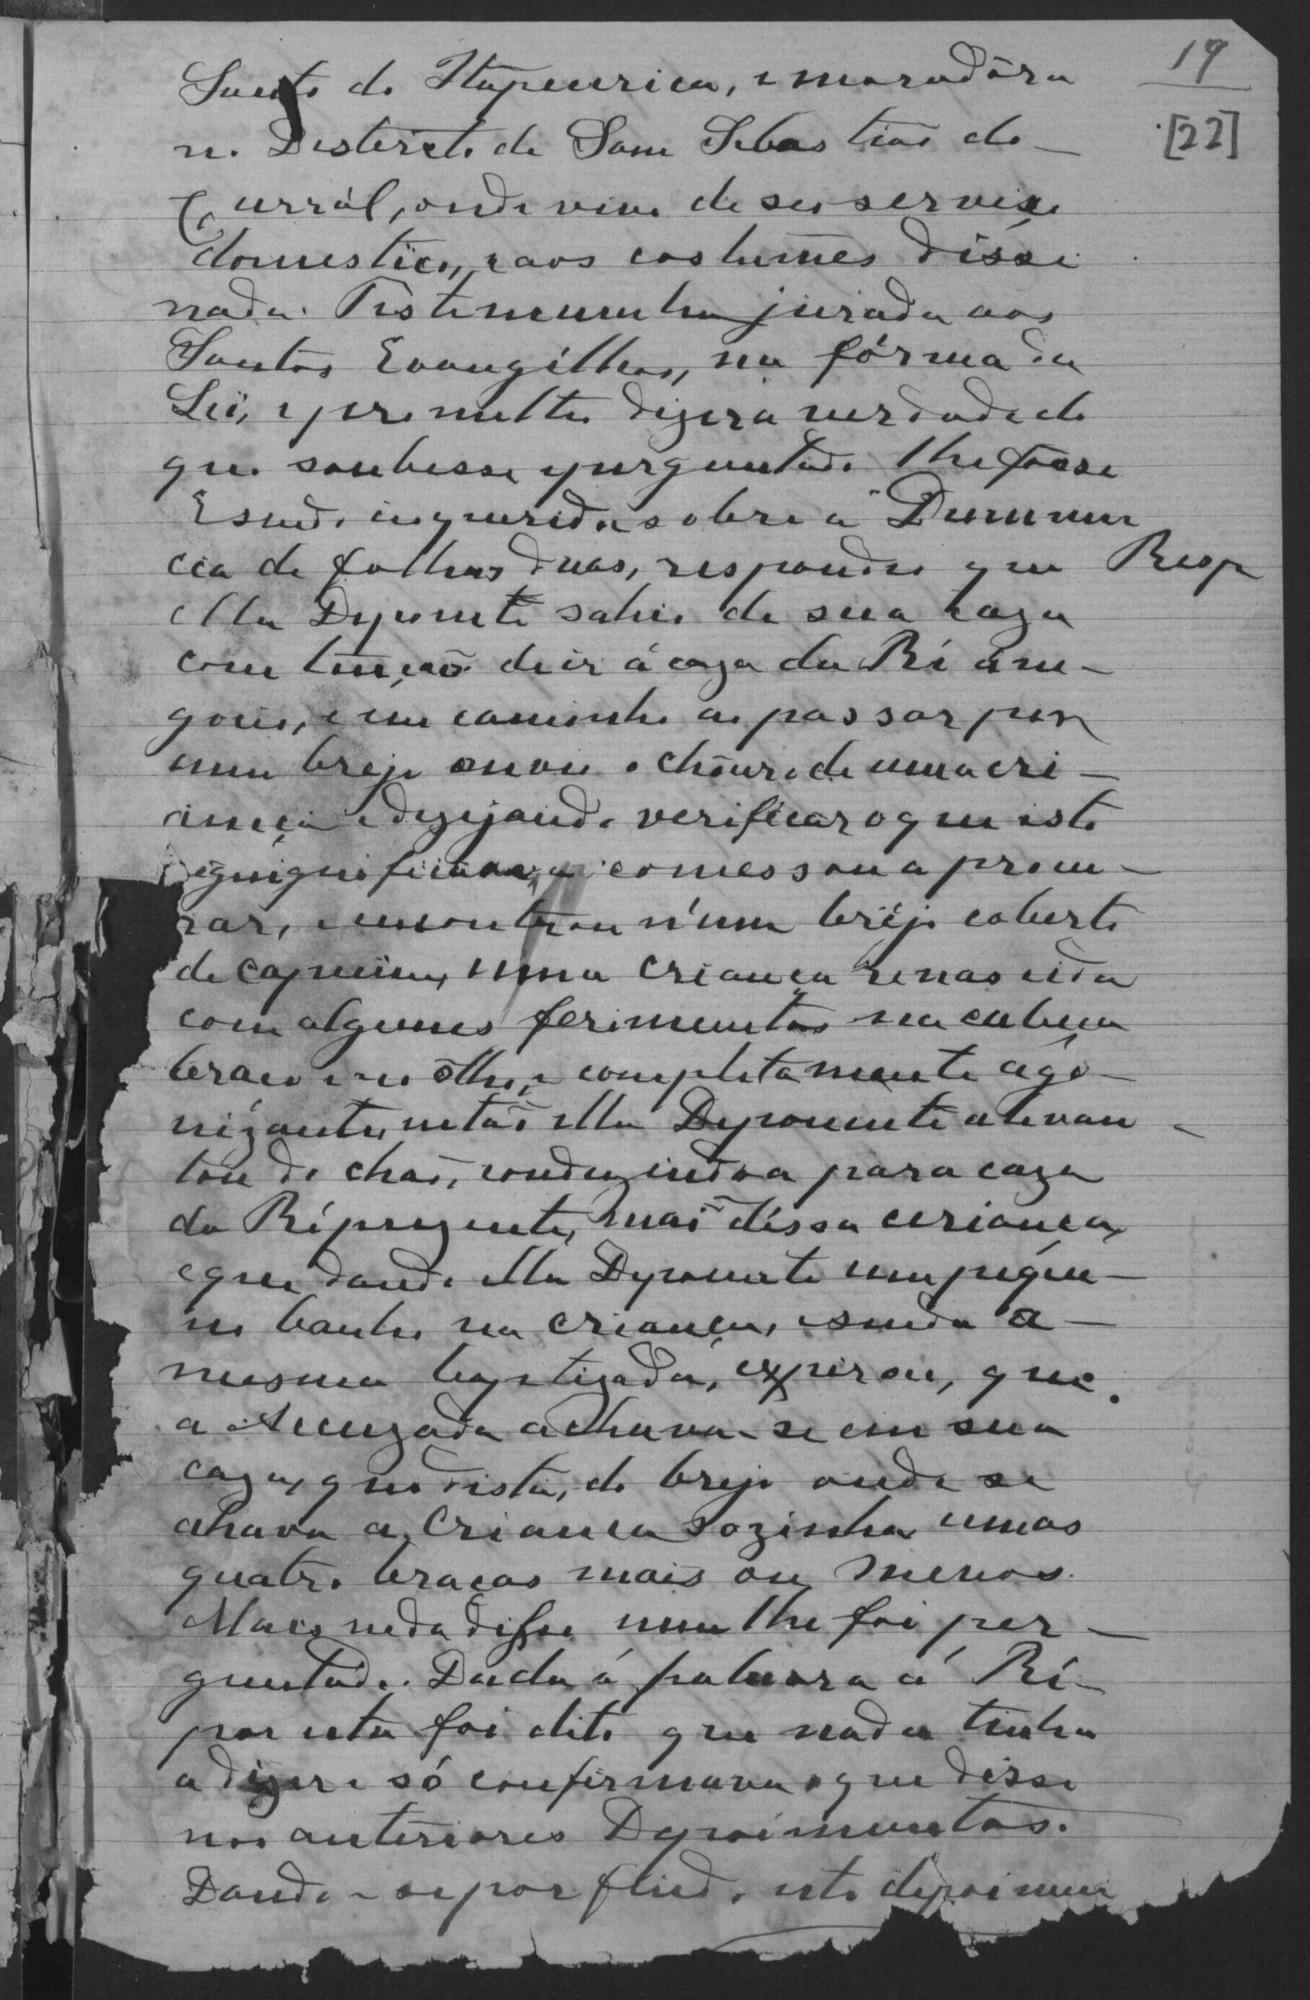 19
[22]
Santo de Itapeurica, e moradôra
no Desterito de Sam Sebastiaõ do
Currál, onde vive de seo servico
domestico, e aos costumes disse
nada. Testemunha jurada aos
Santos Evangélhos, na fórma da
Lei, e prometteo dizer a verdade do
que soubesse e perguntado lhe fosse
E sendo inquerida sobre a Denun
cia de folhas duas, respondeo que Resp
ella Depoente sahio de sua caza
com tençaõ de ir á caza da Ré
e em caminho ao passar por
um brejo ouvio o chôuro de uma cri
ança e dezejando verificar o que isto
comessou a procu
rar, encontrou n'um brejo coberto
de capim, uma criança renascida
com algumes ferimentos na cabeca
braco e no ôlho, e completamente ágo
nizante, entaõ ella Depoente alevan
tou do chaõ, conduzindo a para caza
da Ré prezente, mai déssa crianca,
e que dando ella Depoente um pequê
no banho na crianca, e sendo a
mesma baptizada, expirou, que
a Acuzada achava-se em sua
caza, que dista, do brejo onde se
ahava a Crianca sozinha umas
quatro bracas mais ou menos.
Mais nada disse nem lhe foi per
guntado. Dada á palavra á Ré
por esta foi dito que nada tinha
a dizer e só confirmava o que disse
nos anteriores Depoimentos.
Dando-se por findo este depoimen